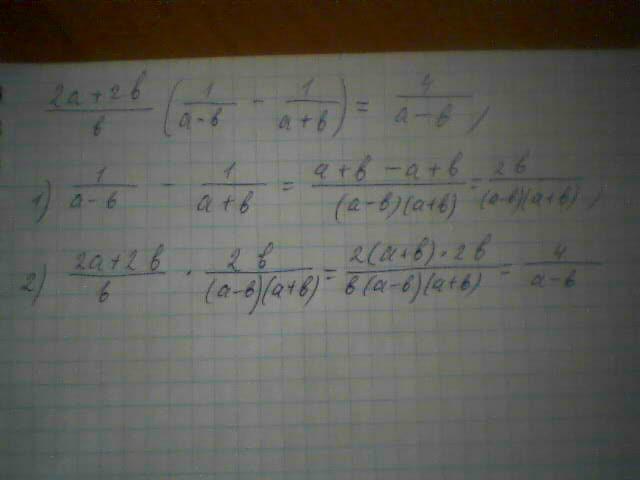 (2a+2b)/b (1/(a-b) - 1/(a+b)) = 4/(a-b),
1) 1/(a-b) - 1/(a+b) = (a+b-a+b)/((a-b)(a+b)) = 2b/((a-b)(a+b)),
2) (2a+2b)/b · 2b/((a-b)(a+b)) = (2(a+b)·2b)/(b(a-b)(a+b)) = 4/(a-b)